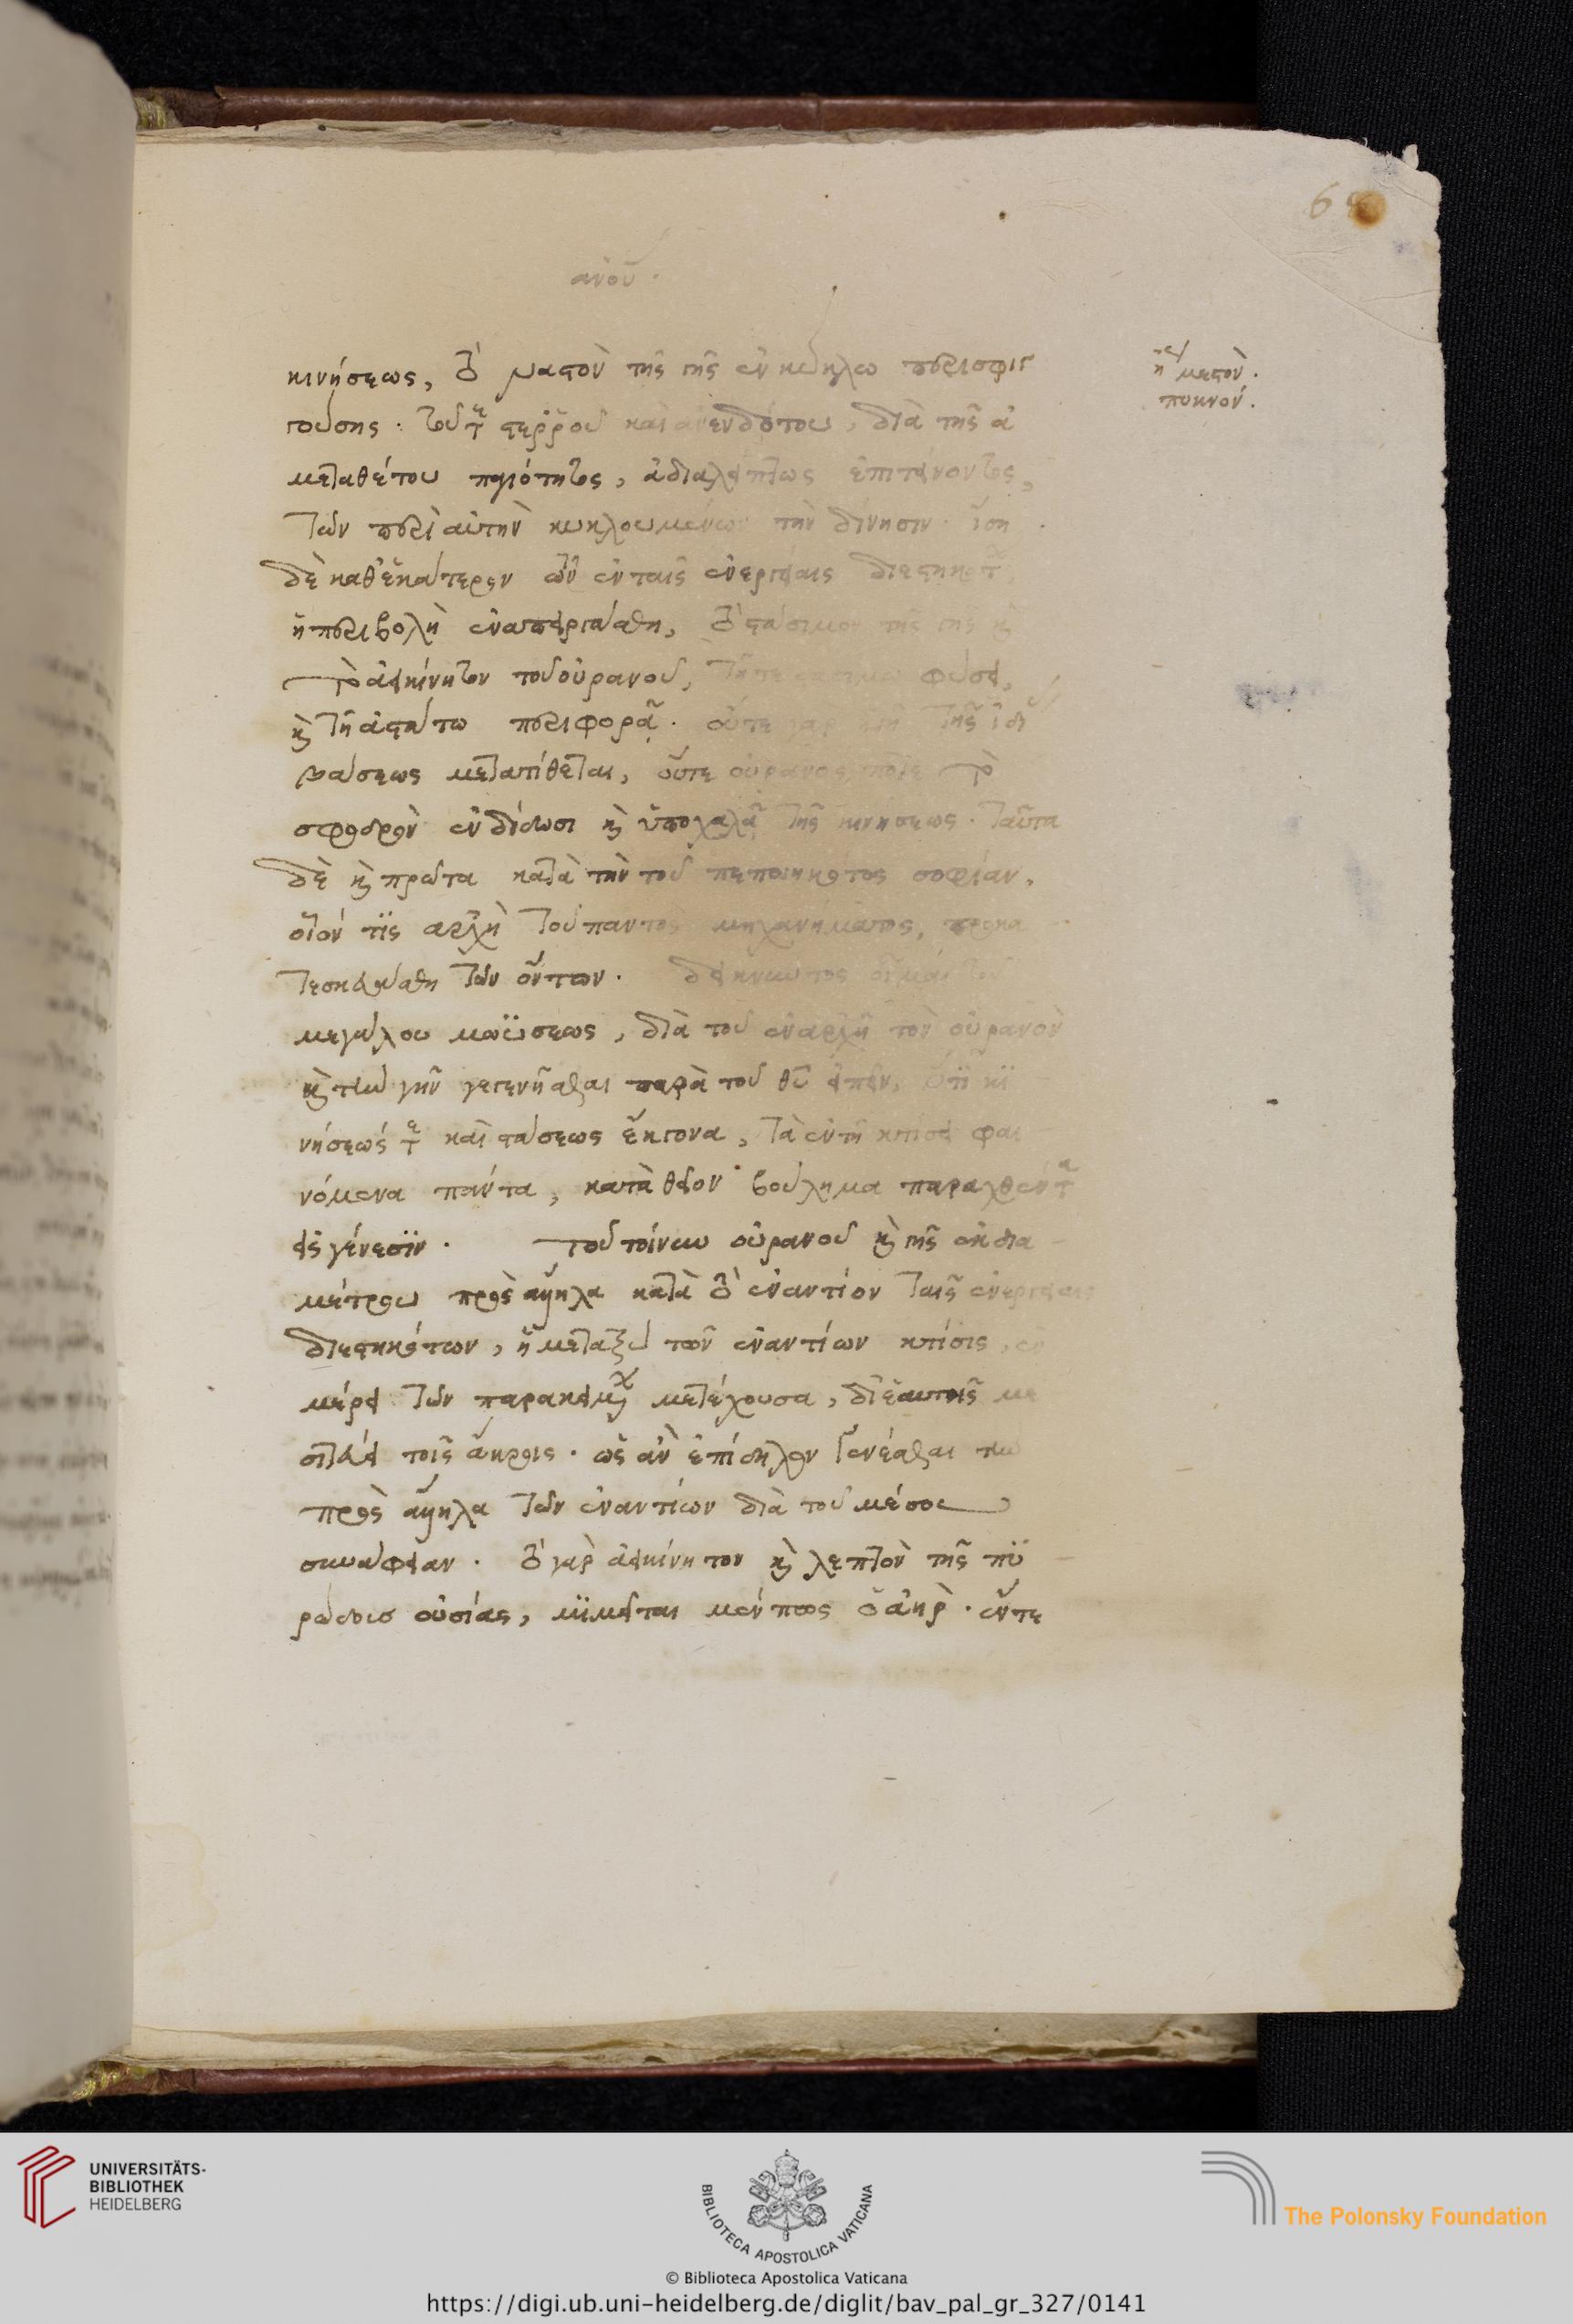 ανου.
κινήσεως, τὸ ναστὸν τῆς γῆς ἐν κύκλω περισφιγ
γούσης. τοῦτε στερροῦ καὶ ἀνενδότου, διὰ τῆς ἀ
μεταθέτου παγιότητος, ἀδιαλείπτως ἐπιτείνοντος,
τῶν περὶ αὐτὴν κυκλουμένων τὴν δίνησιν. ἴση
δὲ καθ' ἑκάτερον τῶν ἐν ταῖς ἐνεργείαις διεστηκότ
ἡ ὑπερβολὴ ἐναπειργάσθη, τῆς γῆς κ
τὸ ἀεικίνητον τοῦ οὐρανοῦ, φύσει,
κ τῆ ἀστάτω περιφορᾶ. οὔτε γὰρ ἡ γῆ τῆς ἰδί
βάσεως μετατίθεται, οὔτε οὐρανος ποτε τὸ
σφοδρὸν ἐνδίδωσι κ ὑποχαλᾶ τῆς κινήσεως. ταῦτα
δὲ κ πρῶτα κατὰ τὴν τοῦ πεποιηκότος σοφίαν,
οἷόν τις ἀρχὴ τοῦ παντὸς μηχανήματος, προκα
τεσκευάσθη τῶν ὄντων. δεικνύντος οἶμαι
μεγάλου μωϋσέως, διὰ τοῦ ἐν ἀρχῆ τὸν οὐρανὸν
κ τὴν γῆν γεγενῆσθαι παρὰ τοῦ θυ εἰπεῖν, ὅτι κι
νήσεώς τε καὶ στάσεως ἔκγονα, τὰ ἐν τῆ κτίσει φαι
νόμενα πάντα, κατὰ θεῖον βούλημα παραχθέντα
εἰς γένεσιν. τοῦ τοίνυν οὐρανοῦ κ γῆς ἐκ δια
μέτρου πρὸς ἄλληλα κατὰ τὸ ἐναντίον ταῖς ἐνεργείαις
διεστηκότων, ἡ μεταξὺ τῶν ἐναντίων κτίσις, ἐν
μέρει τῶν παρακειμ μετέχουσα, δι' ἑαυτῆς με
σιτεύει τοῖς ἄκροις. ὡς ἂν ἐπίδηλον γενέσθαι τὴν
πρὸς ἄλληλα τῶν ἐναντίων διὰ τοῦ μέσου
συνάφειαν. τὸ γὰρ ἀεικίνητον κ λεπτὸν τῆς πυ
ρώδους οὐσίας, μιμεῖταί πως ὁ ἀὴρ. ἔν τε
ἢ μεστὸν.
πυκνόν.
UNIVERSITÄTS-
BIBLIOTHEK
HEIDELBERG
BIBLIOTECA APOSTOLICA VATICANA
The Polonsky Foundation
© Biblioteca Apostolica Vaticana
https://digi.ub.uni-heidelberg.de/diglit/bav_pal_gr_327/0141